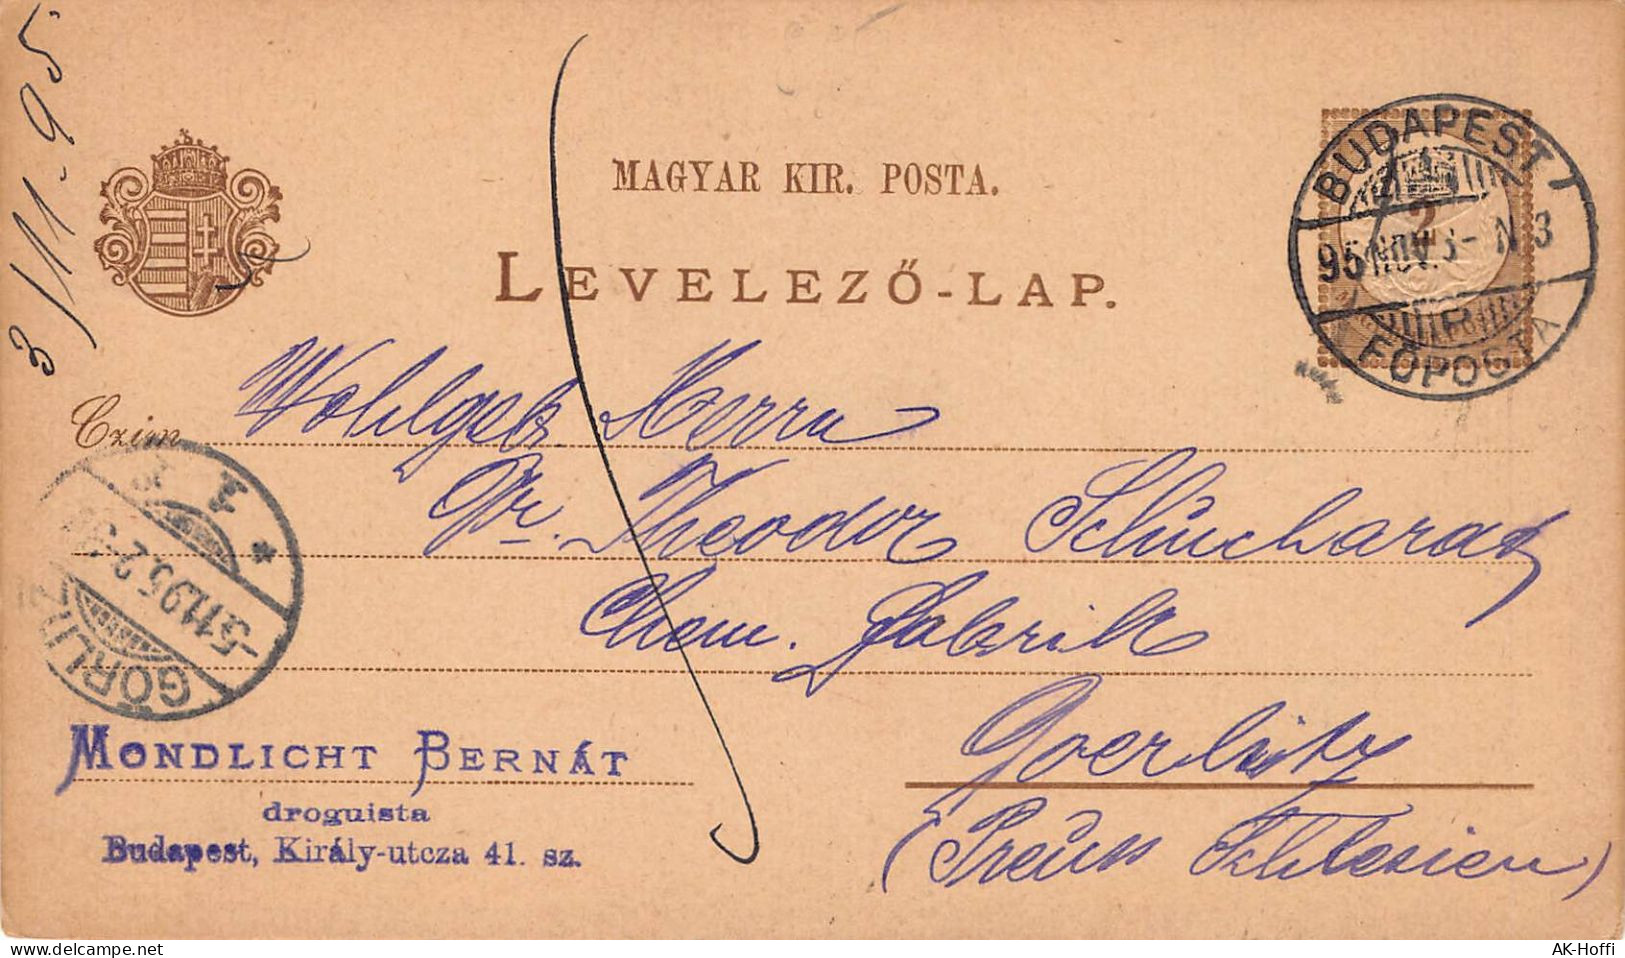 3/11.95
MAGYAR KIR. POSTA.
LEVELEZŐ-LAP.
2
BUDAPEST
95 NOV. 3- N 3
FŐPOSTA
Czim
Wohlgeb. Herrn
Dr. Theodor Schuchardt
Chem. Fabrik
Goerlitz
(Preuss Schlesien)
GÖRLITZ
5.11.95.2-
MONDLICHT BERNÁT
droguista
Budapest, Király-utcza 41. sz.
www.delcampe.net
AK-Hoffi